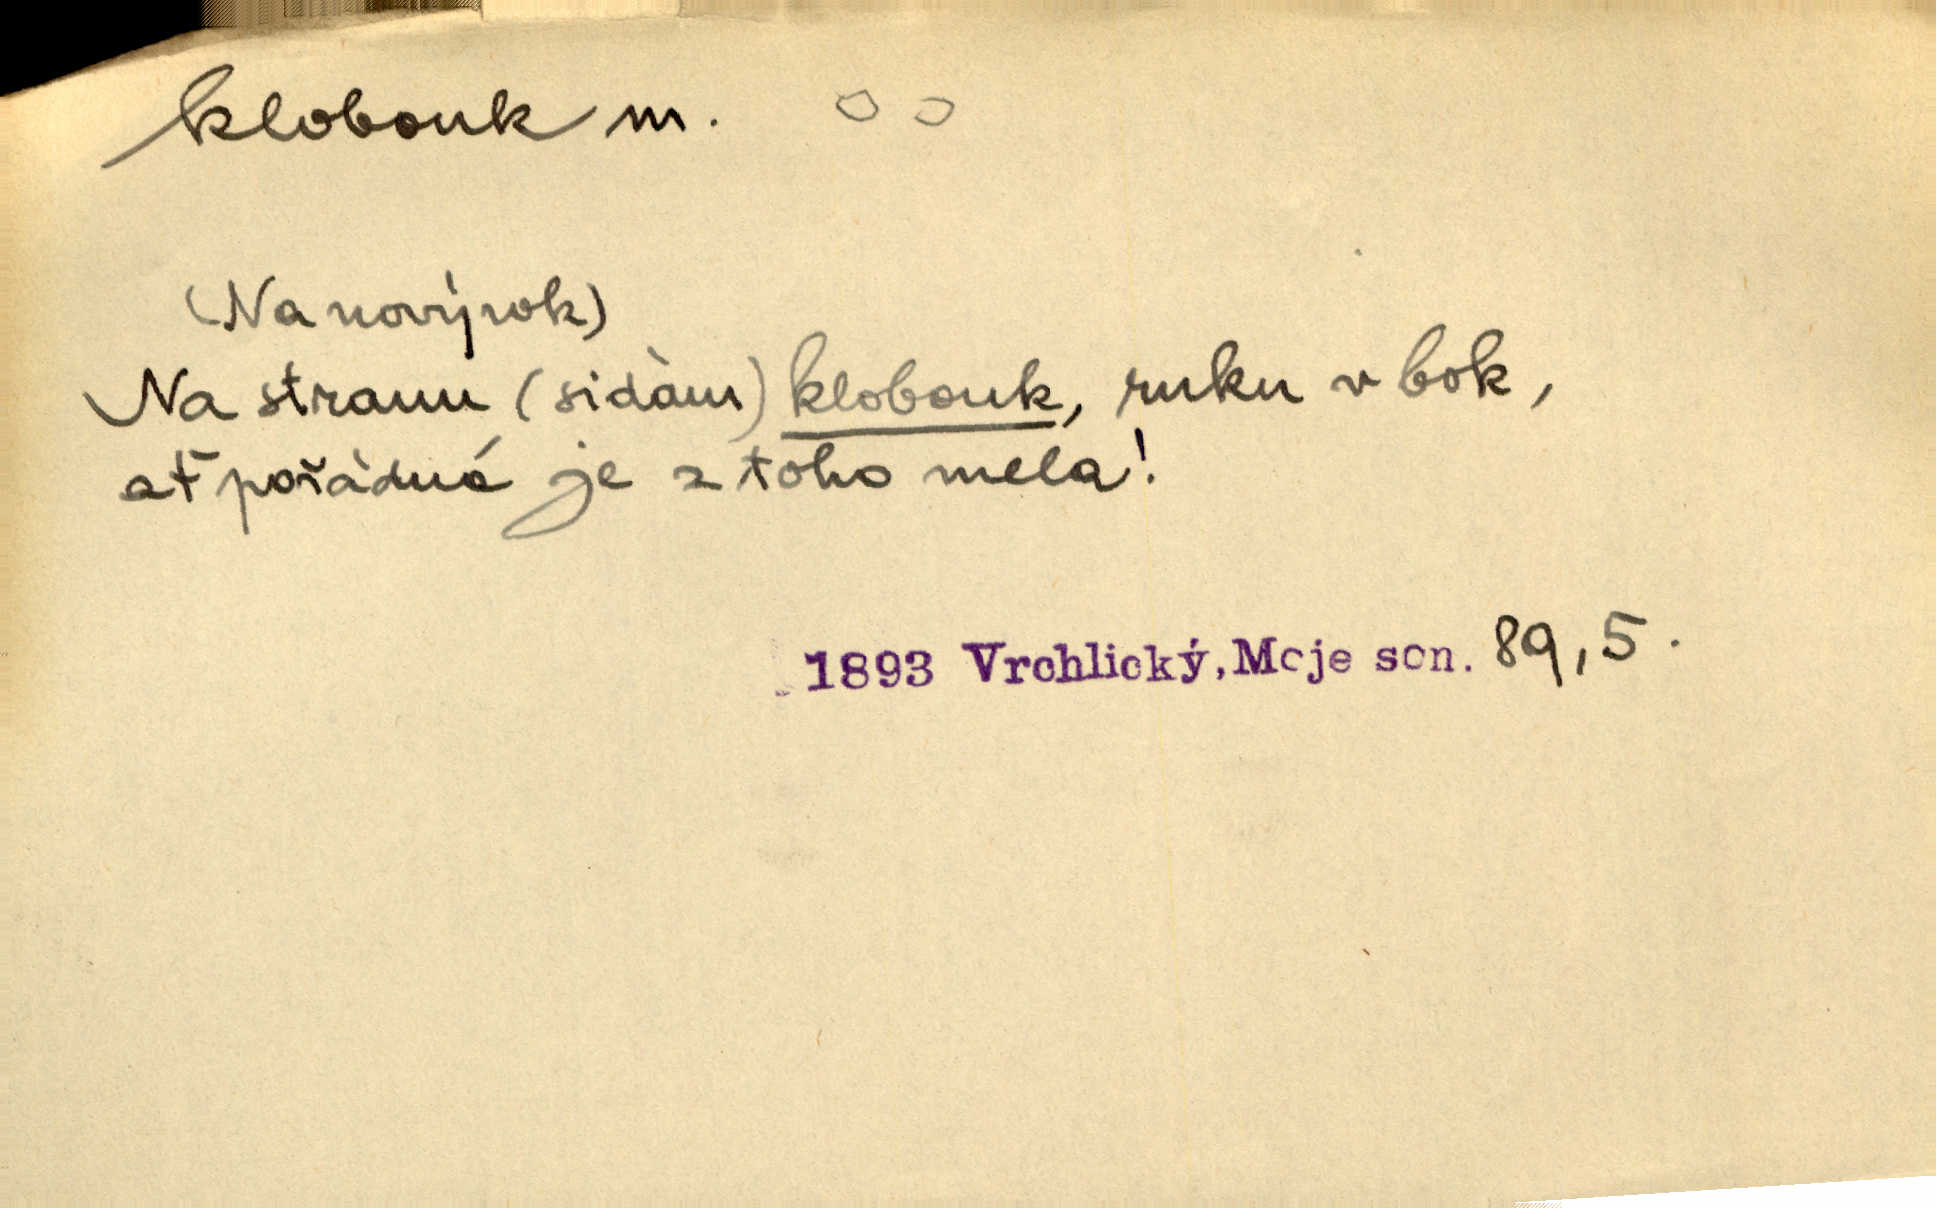 klobouk m.
(Na nový rok)
Na stranu (sidám) klobouk, ruku v bok,
ať pořádná je z toho mela!
1893 Vrchlický, Moje son. 89,5.